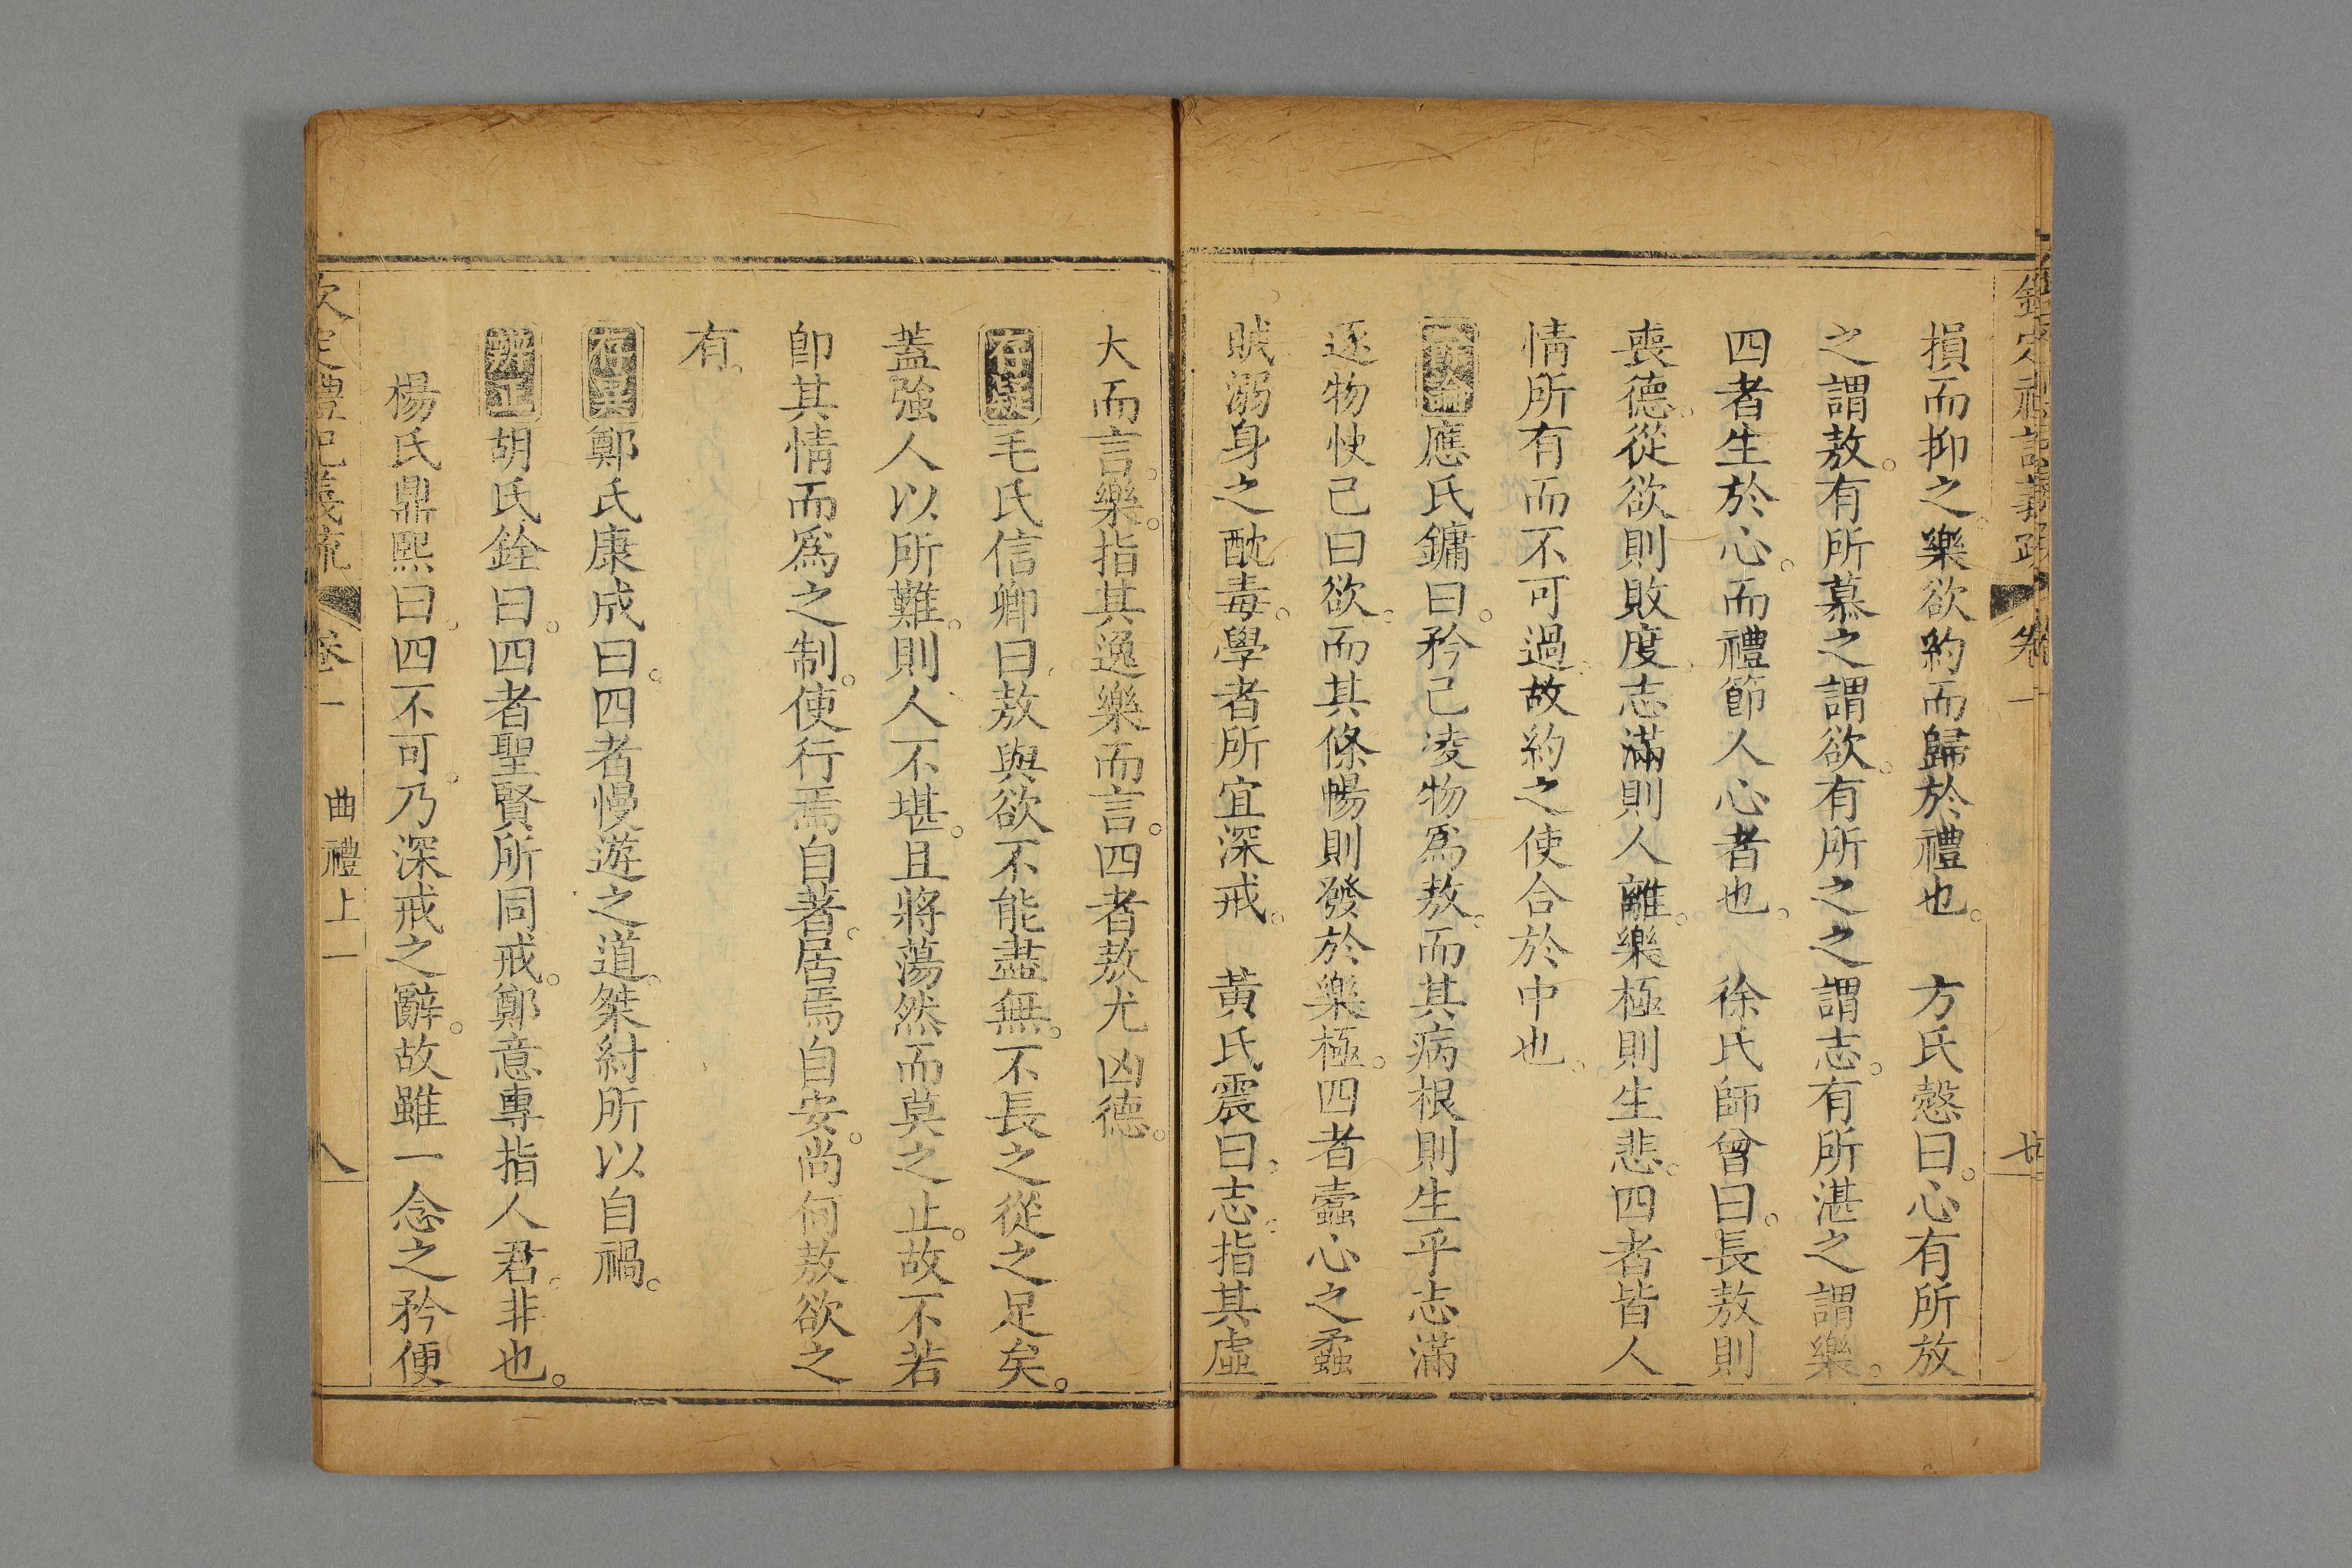 損而抑之樂欲約而歸於禮也。　方氏慤曰。心有所放
之謂敖。有所慕之謂欲。有所之之謂志。有所湛之謂樂。
四者生於心。而禮節人心者也。　徐氏師曾曰。長敖則
喪德。從欲則敗度。志滿則人離。樂極則生悲。四者皆人
情所有而不可過。故約之使合於中也。
應氏鏞曰。矜己凌物為敖。而其病根則生乎志滿
逐物快己曰欲。而其條暢則發於樂極。四者蠹心之蟊
賊。溺身之酖毒。學者所宜深戒。　黃氏震曰。志。指其虛
大而言。樂。指其逸樂而言。四者敖尤凶德。
存疑毛氏信卿曰。敖與欲不能盡無。不長之從之足矣。
蓋強人以所難。則人不堪。且將蕩然而莫之止。故不若
即其情而為之制。使行焉自著。居焉自安。尚何敖欲之
有。
存異鄭氏康成曰。四者慢遊之道。桀紂所以自禍。
辨正胡氏銓曰。四者聖賢所同戒。鄭意專指人君。非也。
楊氏鼎熙曰。四不可。乃深戒之辭。故雖一念之矜便
欽定禮記義疏　卷一　曲禮上一　八